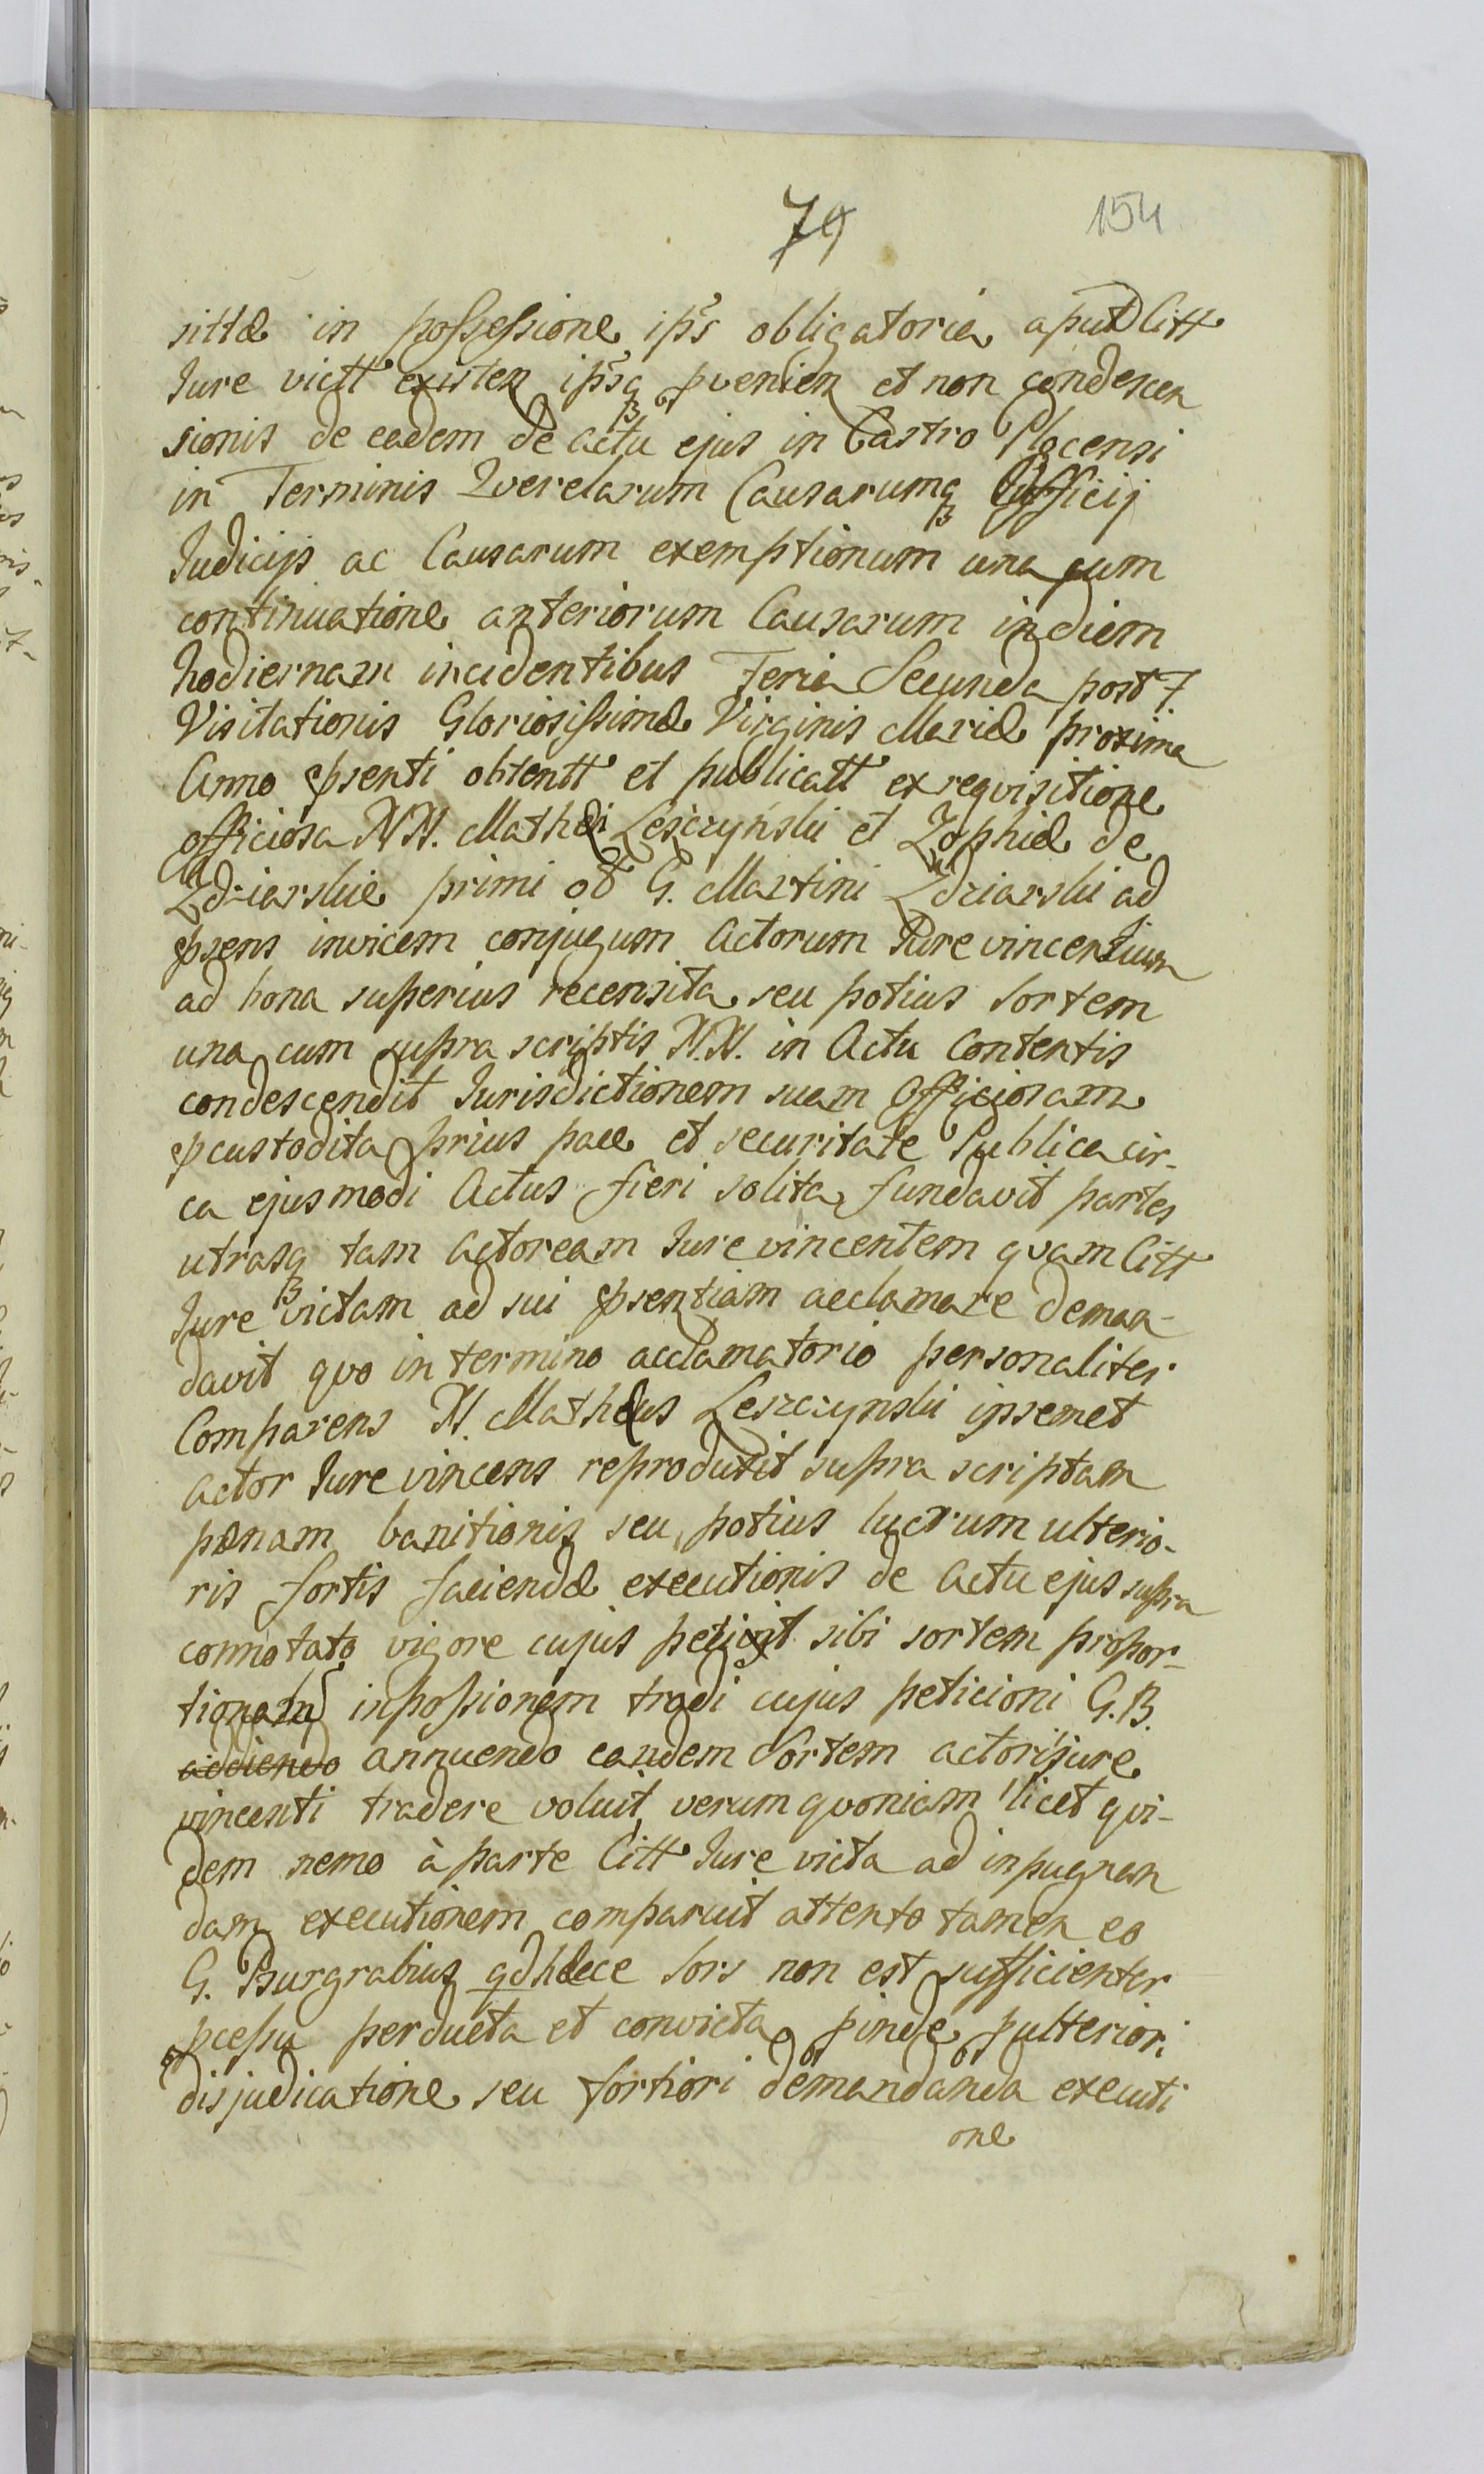 79
154
sittæ in possessione ipŝs obligatoria aput Citt
Jure victt existen ipŝsq pvenien et non condescen
sionis de eadem de actu ejus in Castro Plocensi
in Terminis Qverelarum Causarumq Officij
Judicijs ac Causarum exemptionum una cum
continuatione anteriorum Causarum in diem
hodiernam incidentibus Feria Secunda post F.
Visitationis Gloriosissimæ Virginis Mariæ proxima
Anno psenti obtentt et publicatt ex reqvisitione
officiosa NN. Mathæi Lesczyński et Zophiæ de
Zdziarskie primi ob G. Martini Zdziarski ad
psens invicem conjugum Actorum Jure vincentium
ad bona superius recensita seu potius Sortem
una cum supra scriptis N.N. in Actu Contentis
condescendit Jurisdictionem suam Officiosam
pcustodita prius pace et securitate Publica cir-
ca ejusmodi Actus fieri solita fundavit partes
utrasq tam Actoream Jure vincentem qvam Citt
Jure victam ad sui psentiam acclamare deman-
davit qvo in termino acclamatorio personaliter
Comparens N. Mathæus Leszczynski ipsemet
Actor Jure vincens reproduxit supra scriptam
pænam banitionis seu potius lucrum ulterio-
ris fortis faciendæ executionis de Actu ejus supra
connotato vigore cujus peticiit sibi sortem propor-
tionatam in possionem tradi cujus peticioni G.B.
addiendo annuendo eandem Sortem actori jure
vincenti tradere voluit verum qvoniam licet qvi-
dem nemo à parte Citt Jure victa ad inpugnan
dam executionem comparuit attento tamen eo
G. Burgrabius qd hæce Sors non est sufficienter
pcessu perducta et convicta pinde pulteriori
disjudicatione seu fortiori demandanda executi
one